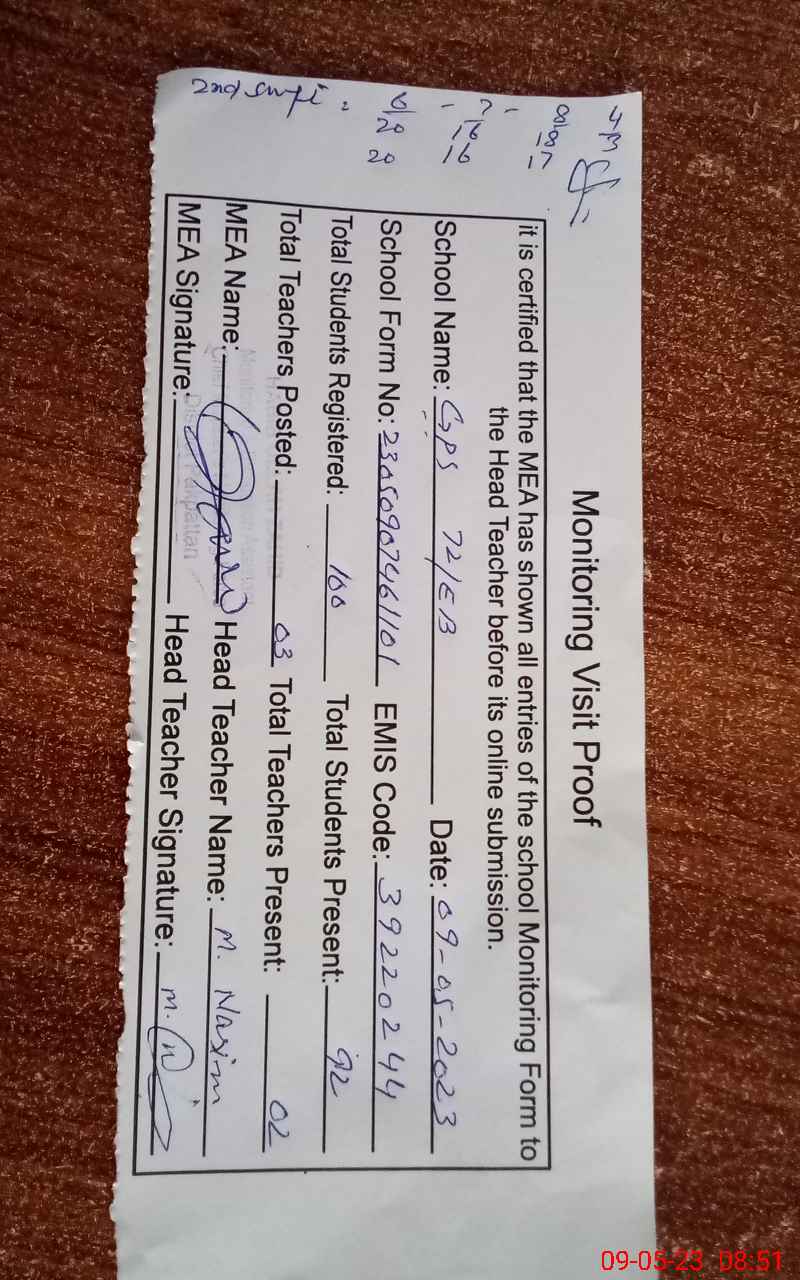 Monitoring Visit Proof
it is certified that the MEA has shown all entries of the school Monitoring Form to
the Head Teacher before its online submission.
School Name: GPS 72/EB Date: 09-05-2023
School Form No: 23050907461101 EMIS Code: 39220244
Total Students Registered: 100 Total Students Present: 92
Total Teachers Posted: 03 Total Teachers Present: 02
MEA Name: Head Teacher Name: M. Nasim
MEA Signature: Head Teacher Signature:
2nd
6/20 20
7 16 16
Pakpattan
09-05-23 08:51